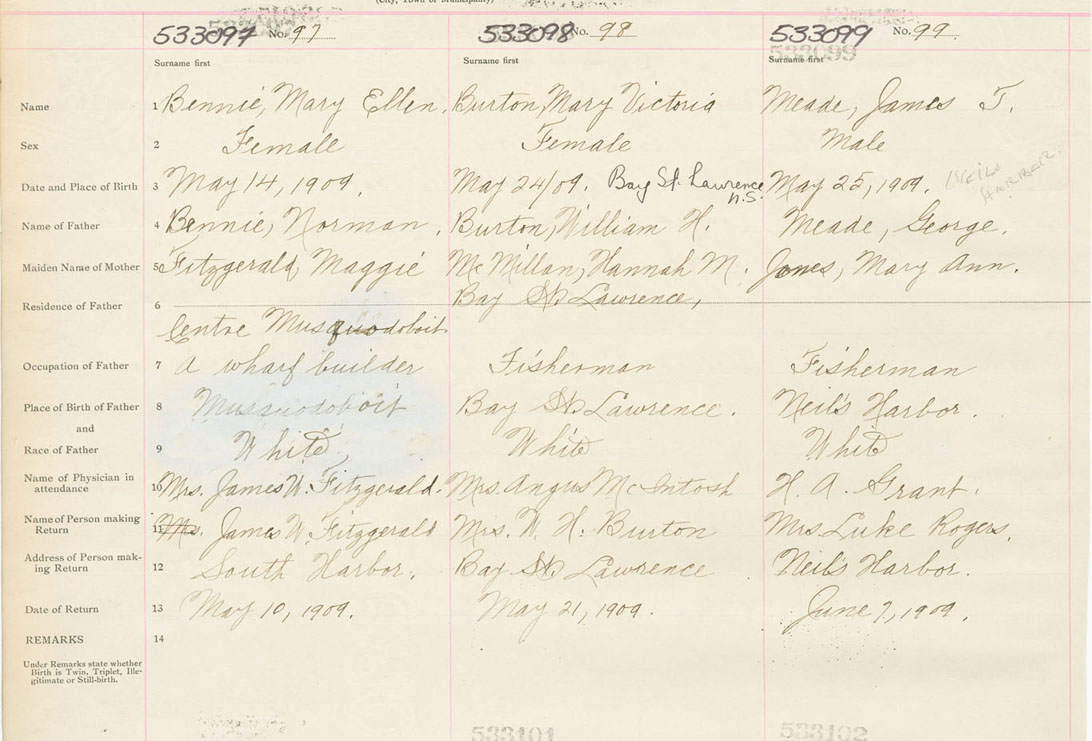 (City, Town or Municipality)
533097 No. 97 533098 No. 98 533099 No. 99.
533099
Surname first Surname first Surname first
Name 1 Bennie, Mary Ellen. Burton, Mary Victoria Meade, James T.
Sex 2 Female Female Male
Date and Place of Birth 3 May 14, 1909. May 24/09. Bay St. Lawrence N.S. May 25, 1909. Neils Harbor.
Name of Father 4 Bennie, Norman. Burton, William H. Meade, George.
Maiden Name of Mother 5 Fitzgerald, Maggie McMillan, Hannah M. Jones, Mary Ann.
Residence of Father 6 Centre Musquodoboit Bay St. Lawrence,
Occupation of Father 7 A wharf builder Fisherman Fisherman
Place of Birth of Father 8 Musquodoboit Bay St. Lawrence. Neil's Harbor.
and
Race of Father 9 White, White White
Name of Physician in attendance 10 Mrs. James W. Fitzgerald. Mrs. Angus McIntosh H. A. Grant.
Name of Person making Return 11 Mrs. James W. Fitzgerald Mrs. W. H. Burton Mrs Luke Rogers.
Address of Person making Return 12 South Harbor. Bay St. Lawrence Neil's Harbor.
Date of Return 13 May 10, 1909. May 21, 1909. June 7, 1909.
REMARKS 14
Under Remarks state whether
Birth is Twin, Triplet, Ille-
gitimate or Still-birth.
533101 533102